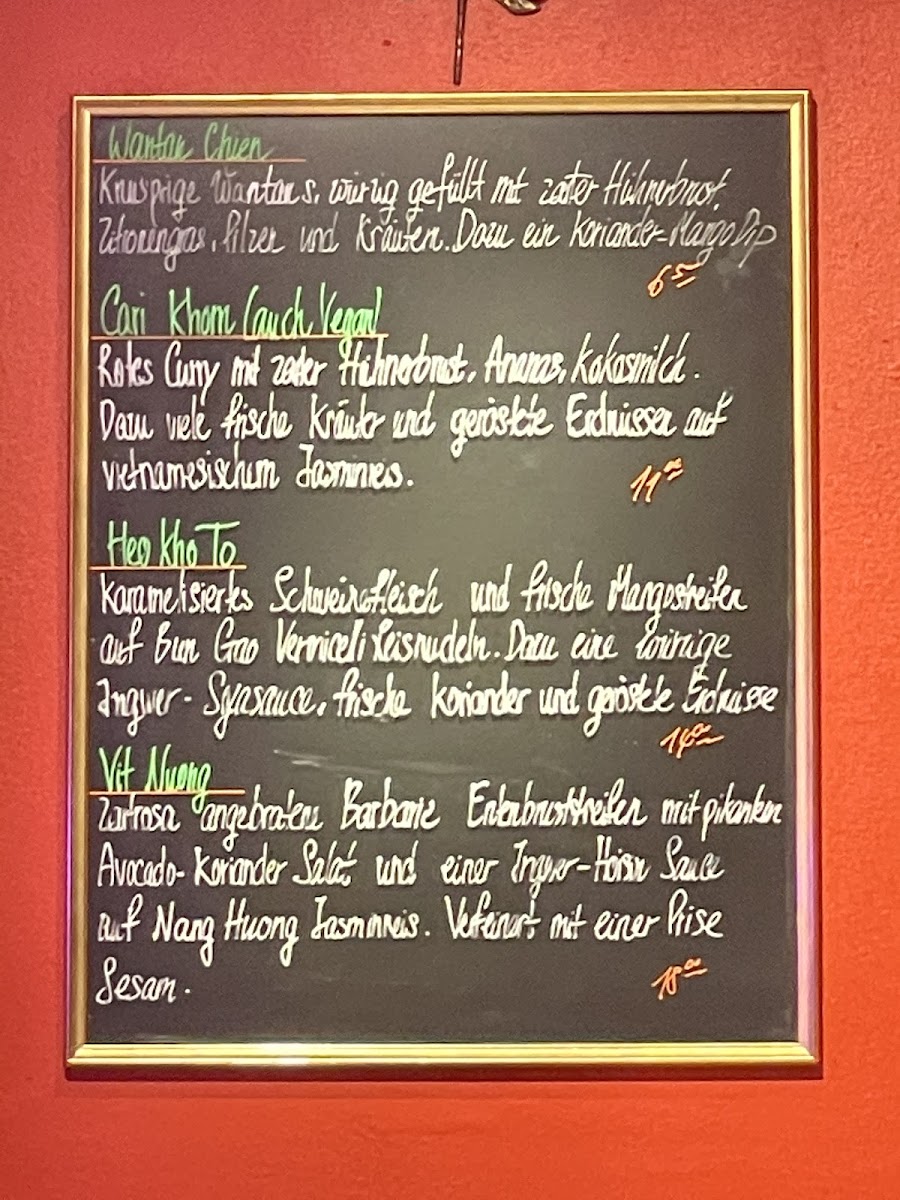 Wantan Chien
Knusprige Wantans, würzig gefüllt mit zarter Hühnerbrust,
Zitronengras, Pilzen und Kräutern. Dazu ein Koriander-Mango Dip
6 50
Cari Khom (auch Vegan)
Rotes Curry mit zarter Hühnerbrust, Ananas, Kokosmilch.
Dazu viele frische Kräuter und geröstete Erdnüssen auf
vietnamesischem Jasminreis.
11 00
Heo Kho To
Karamelisiertes Schweinefleisch und frische Mangostreifen
auf Bun Gao Vermiceli Reisnudeln. Dazu eine würzige
Ingwer- Soyasauce, frische Koriander und geröstete Erdnüsse
14 00
Vit Nuong
Zartrosa angebratene Barbarie Entenbruststreifen mit pikantem
Avocado- Koriander Salat und einer Ingwer-Hoisin Sauce
auf Nang Huong Jasminreis. Verfeinert mit einer Prise
Sesam.
18 00